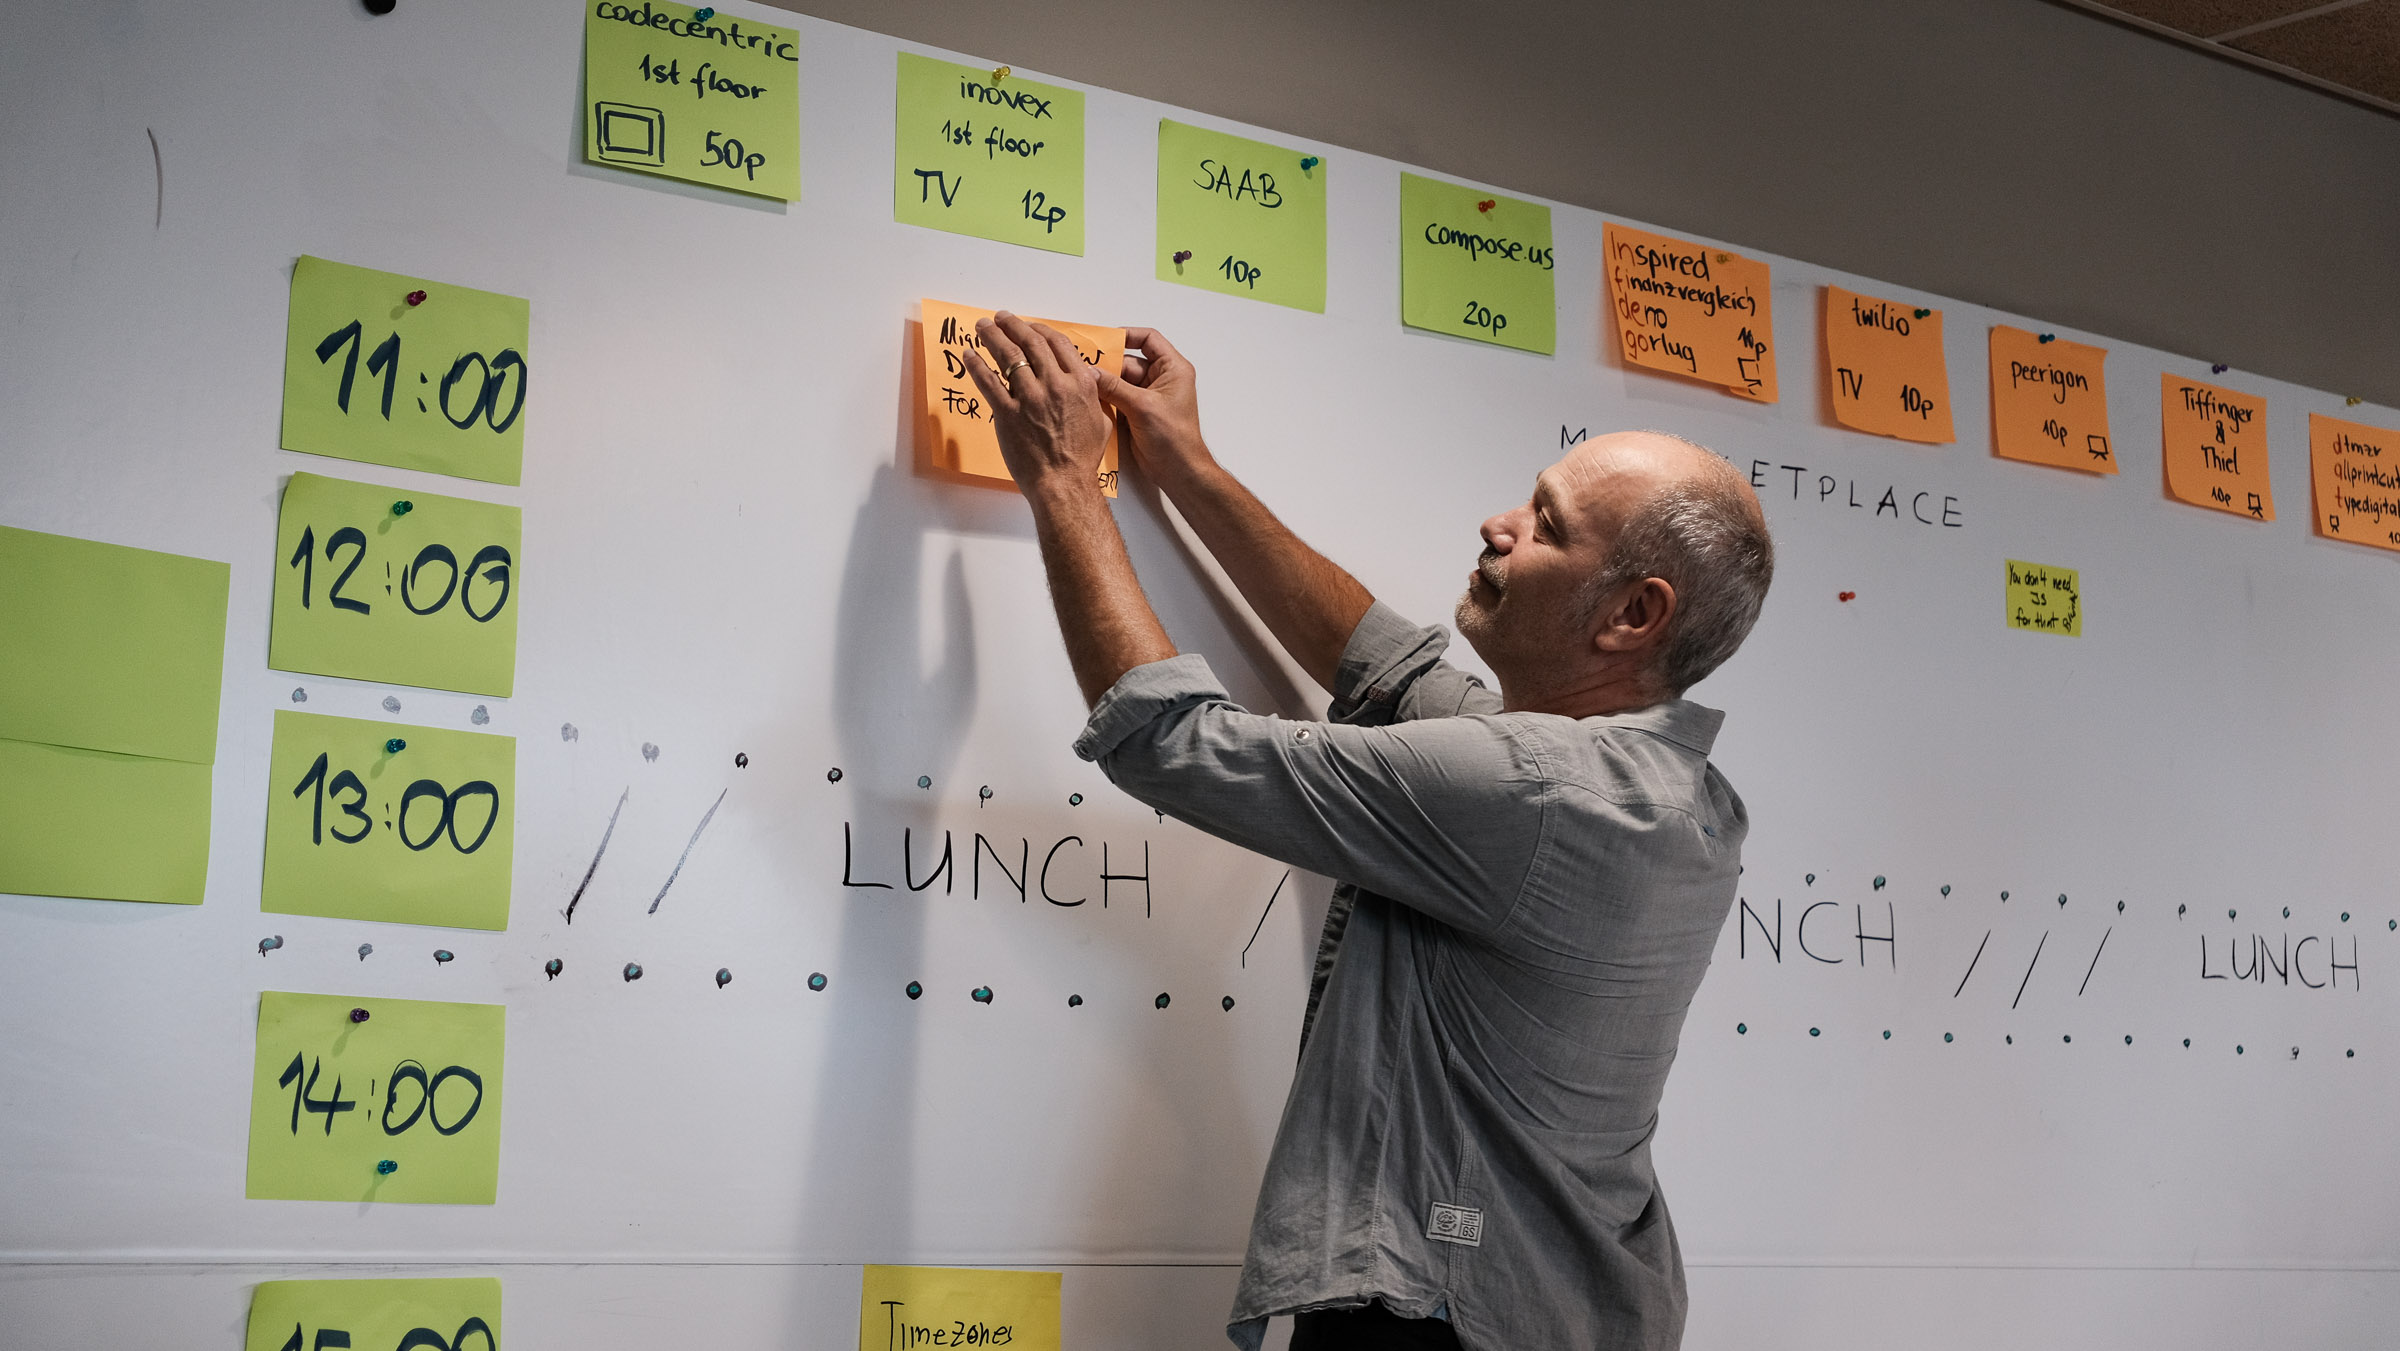 codecentric
1st floor
50p
inovex
1st floor
TV 12p
SAAB
10p
compose.us
20p
Inspired
finanzvergleich
demo
gorlug
10p
twilio
TV 10p
peerigon
10p
Tiffinger
&
Thiel
10p
dtmzr
allprintcut
typedigital
10
FOR
11:00
12:00
13:00
14:00
15:00
LUNCH
NCH
LUNCH
You don't need
JS
for that
Timezones
GS